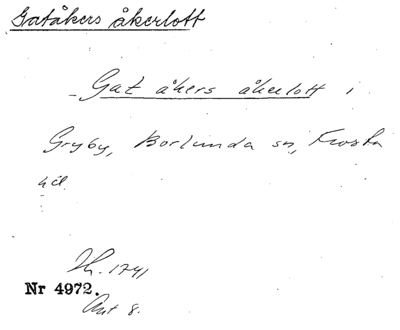 Gatåkers åkerlott
Gat åkers åkerlott i
Gryby, Borlunda sn, Frosta
hd.
Jh. 1741
Nr 4972.
Akt 8.